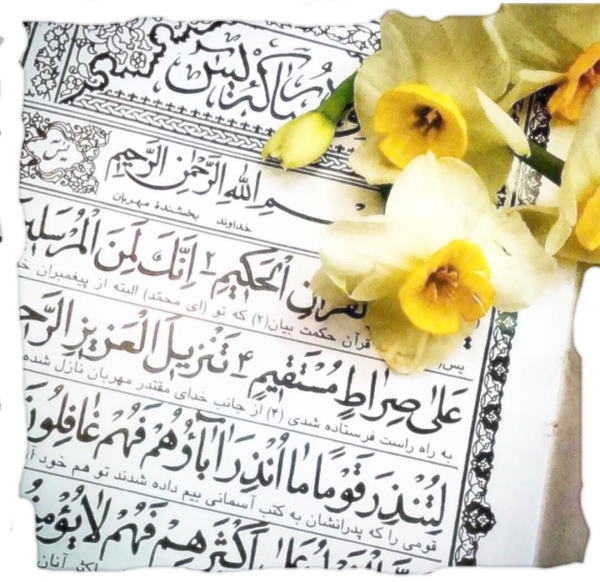 سورة يس
يس
بسم الله الرَّحْمٰنِ الرَّحيمِ
خداوند بخشندهٔ مهربان
الْحَكيمِ ٢ اِنَّكَ لَمِنَ الْمُرْسَلينَ
یس/ قرآن حکمت بیان(۲) که تو (ای محمّد) البته از پیغمبران
عَلىٰ صِرٰاطٍ مُسْتَقيمٍ ٤ تَنْزيلَ الْعَزيزِ
به راه راست فرستاده شدی (۴) از جانب خدای مقتدر مهربان نازل شده
لِتُنْذِرَ قَوْمًا مٰا اُنْذِرَ اٰبٰاؤُهُمْ فَهُمْ غٰافِلُونَ
قومی را که پدرانشان به کتب آسمانی بیم داده شدند تو هم خود
عَلىٰ اَكْثَرِهِمْ فَهُمْ لٰا
اکثر آنان